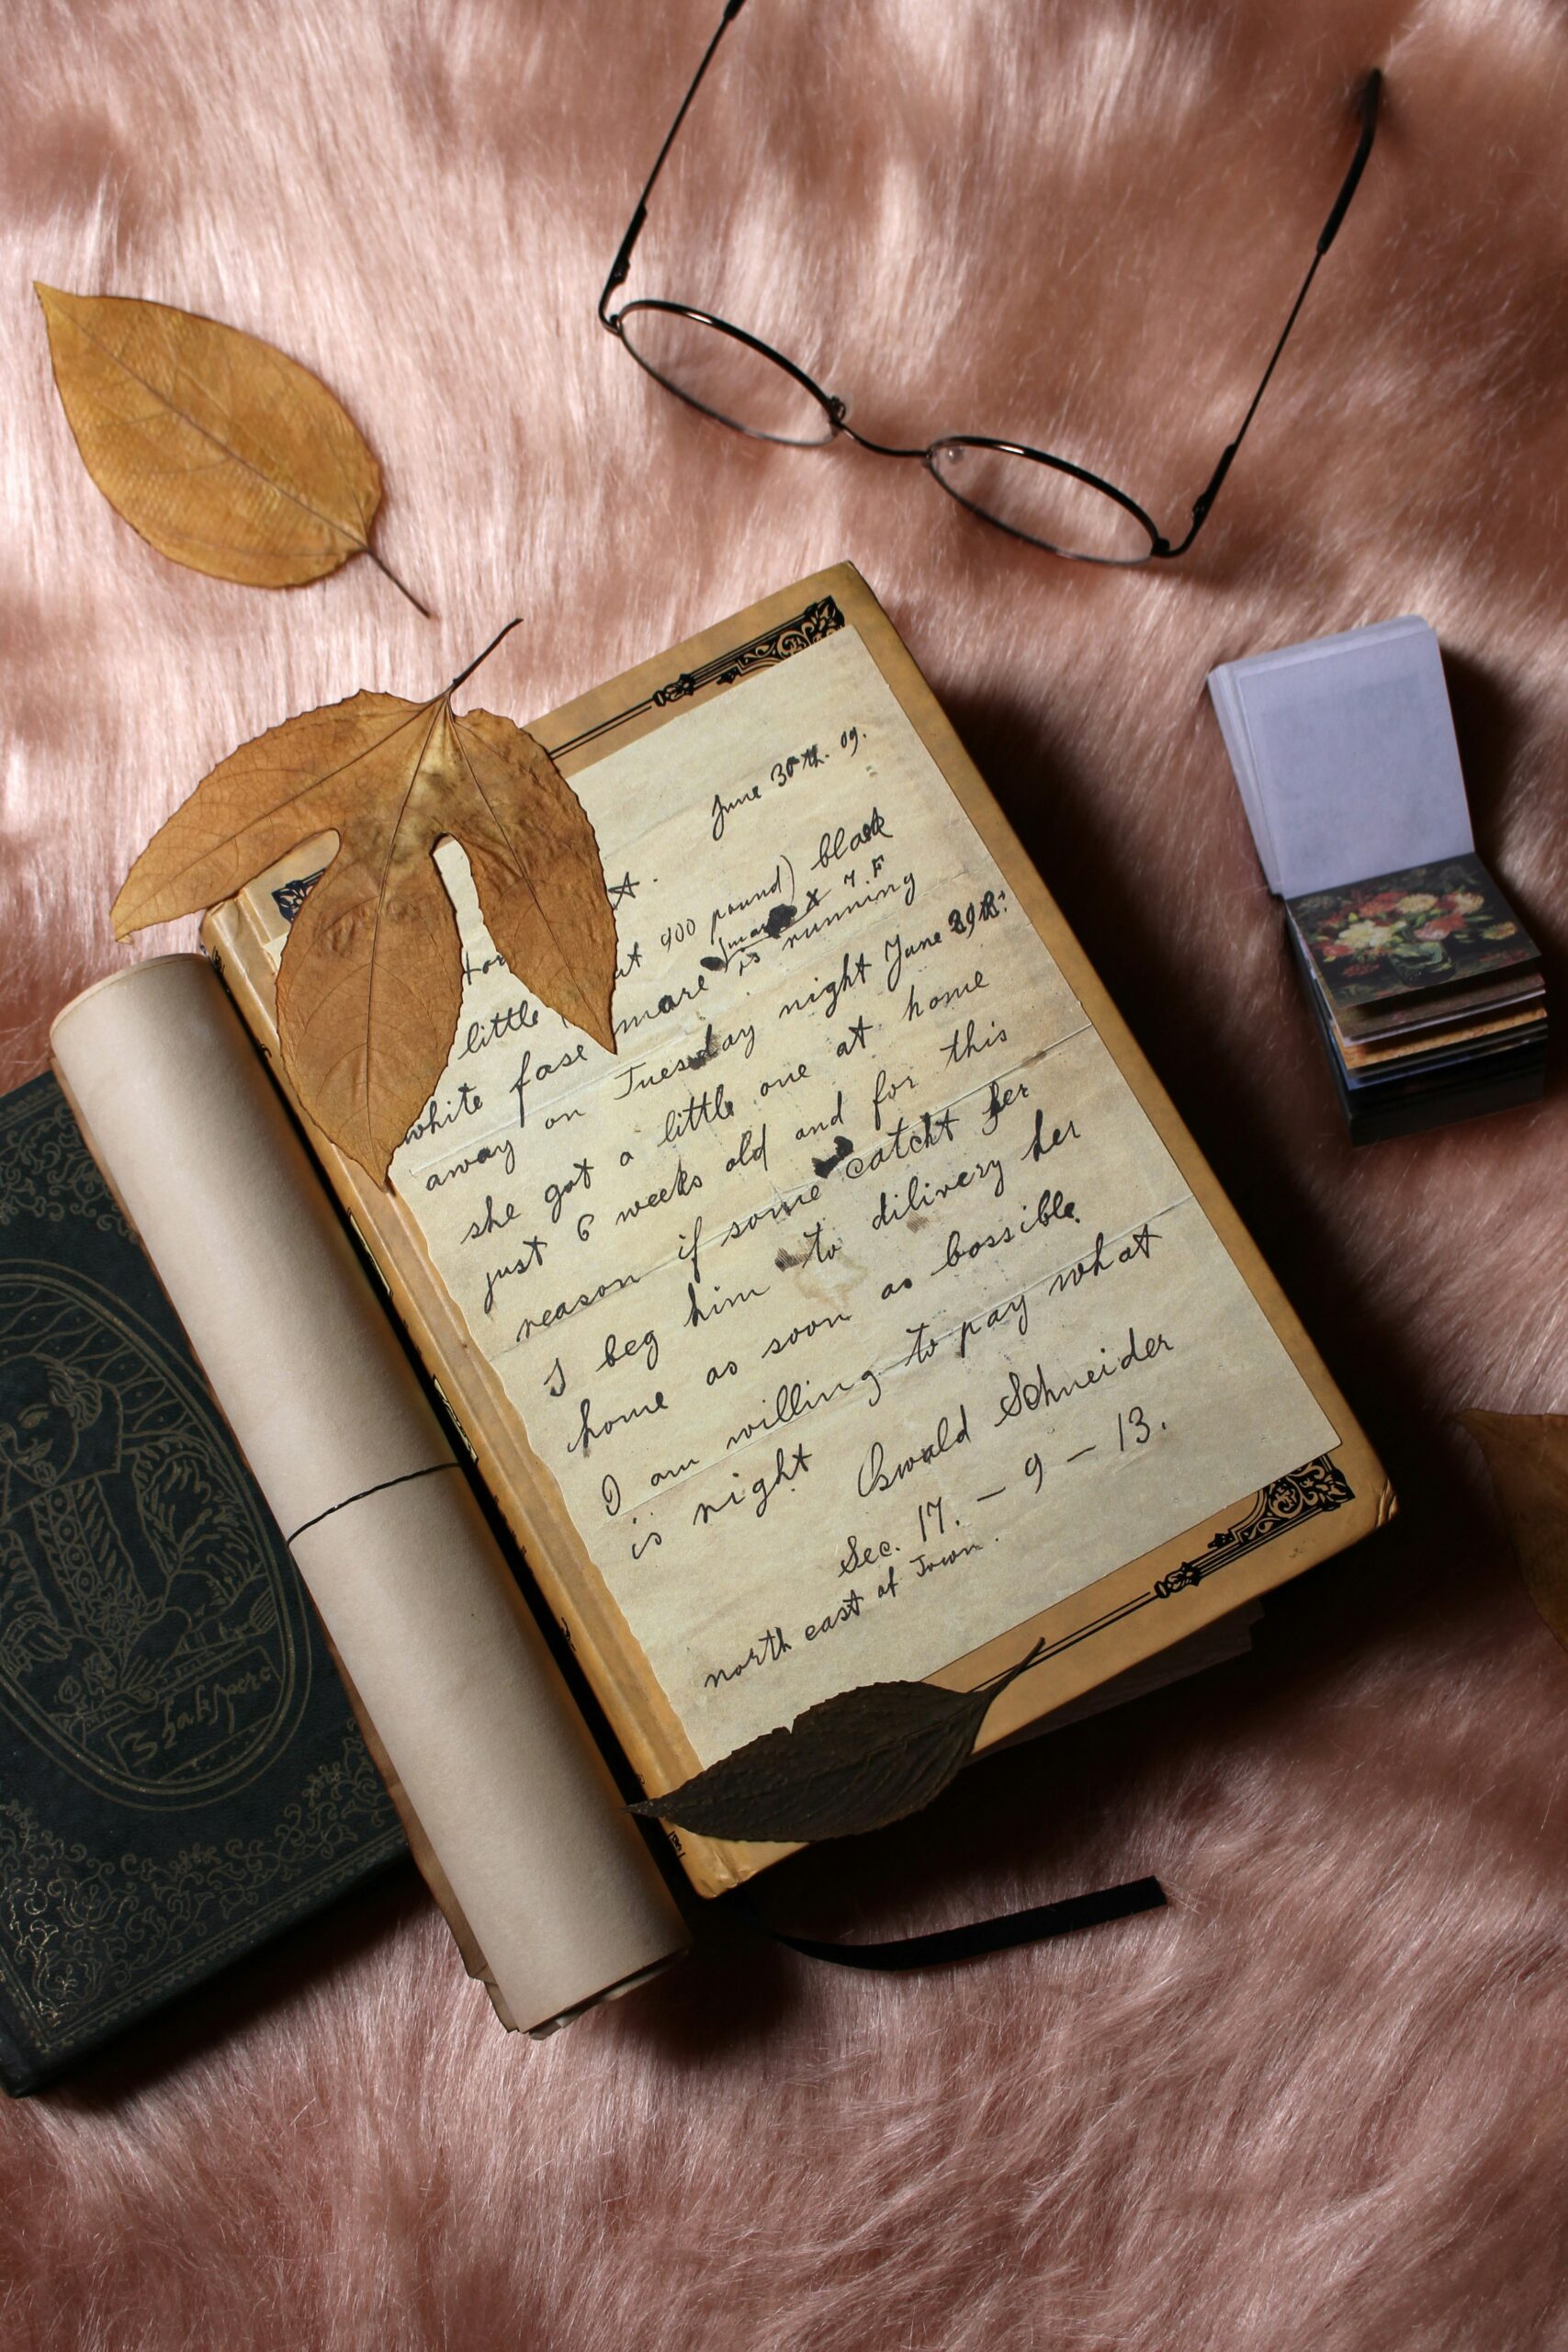 June 30th. 09.
little 900 pound) black
white fase mare is running
away on Tuesday night June 29th:
she got a little one at home
just 6 weeks old and for this
reason if some catcht her
I beg him to dilivery her
home as soon as bossible
I am willing to pay what
is right Oswald Schneider
Sec. 17. – 9 – 13.
north east of Town.